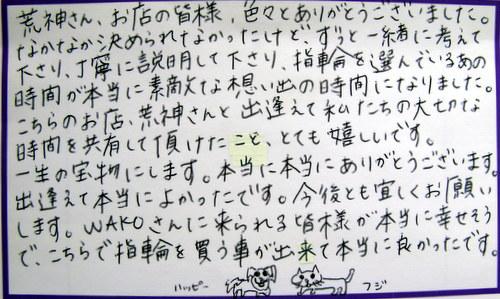 荒神さん、お店の皆様、色々とありがとうございました。
なかなか決められなかったけど、ずっと一緒に考えて
下さり、丁寧に説明して下さり、指輪を選んでいるあの
時間が本当に素敵な想い出の時間になりました。
こちらのお店、荒神さんと出逢えて私たちの大切な
時間を共有して頂けたこと、とても嬉しいです。
一生の宝物にします。本当に本当にありがとうございます。
出逢えて本当によかったです。今後とも宜しくお願い
します。WAKOさんに来られる皆様が本当に幸せそう
で、こちらで指輪を買う事が出来て本当に良かったです。
ハッピー フジ